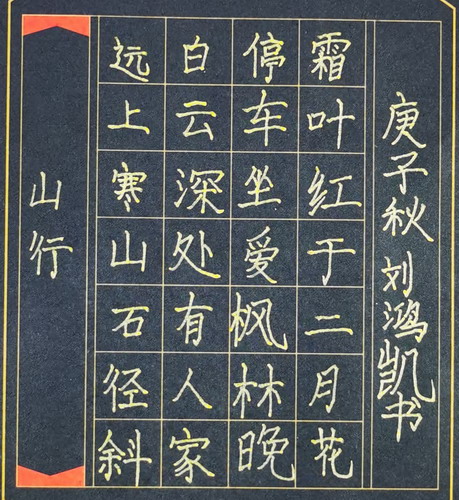 山行
远上寒山石径斜
白云深处有人家
停车坐爱枫林晚
霜叶红于二月花
庚子秋 刘鸿凯书